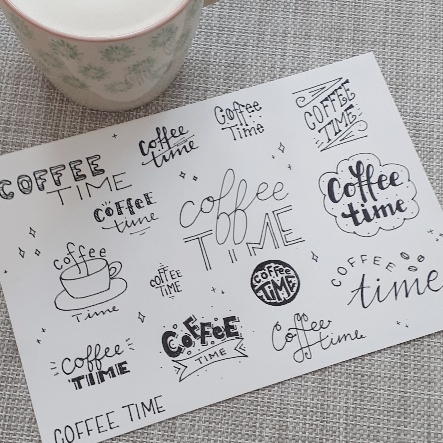 Coffee
time
Coffee
Time
COFFEE
TIME
COFFEE
TIME
COFFEE
time
coffee
TIME
Coffee
time
coffee
Time
COFFEE
TIME
COFFEE
TIME
COFFEE
time
coffee
TIME
COFFEE
TIME
Coffee
time
COFFEE TIME